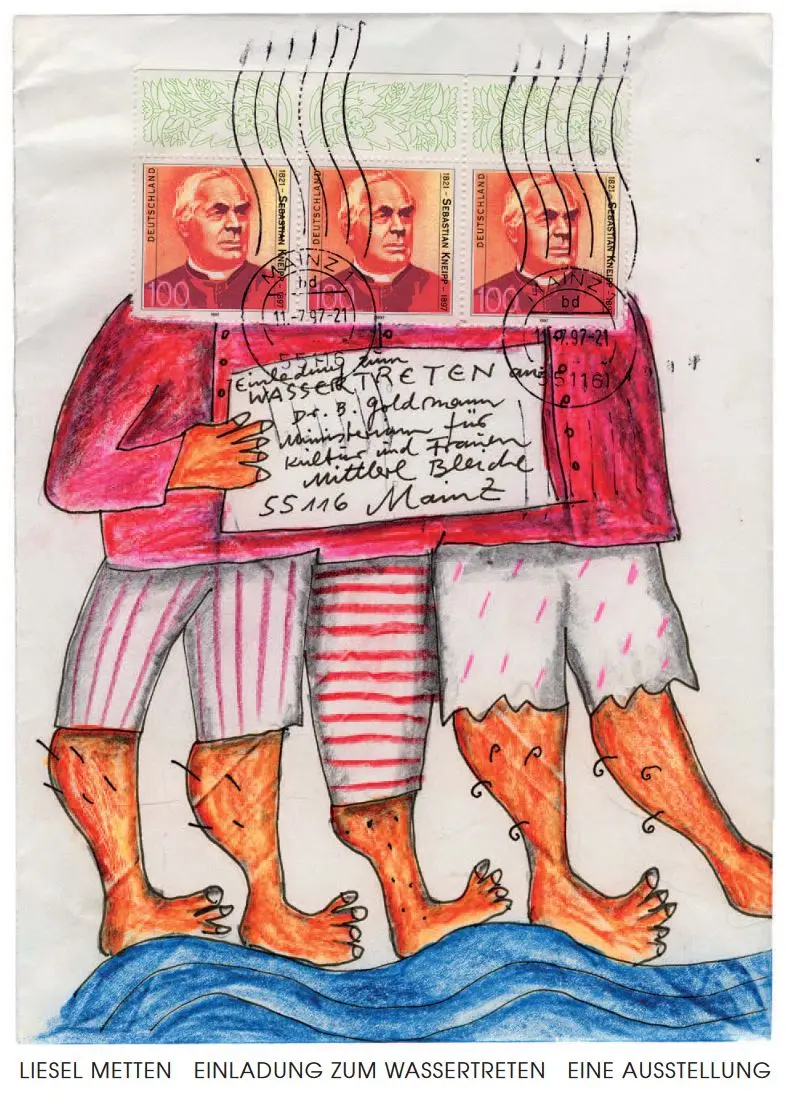 DEUTSCHLAND
1821 – SEBASTIAN KNEIPP – 1897
100
1997
DEUTSCHLAND
1821 – SEBASTIAN KNEIPP – 1897
100
1997
DEUTSCHLAND
1821 – SEBASTIAN KNEIPP – 1897
100
1997
MAINZ
bd
11.-7.97-21
55116
MAINZ
bd
11.-7.97-21
55116
Einladung zum
WASSERTRETEN an:
Dr. B. Goldmann
Ministerium für
Kultur und Frauen
Mittlere Bleiche
55116 Mainz
LIESEL METTEN EINLADUNG ZUM WASSERTRETEN EINE AUSSTELLUNG